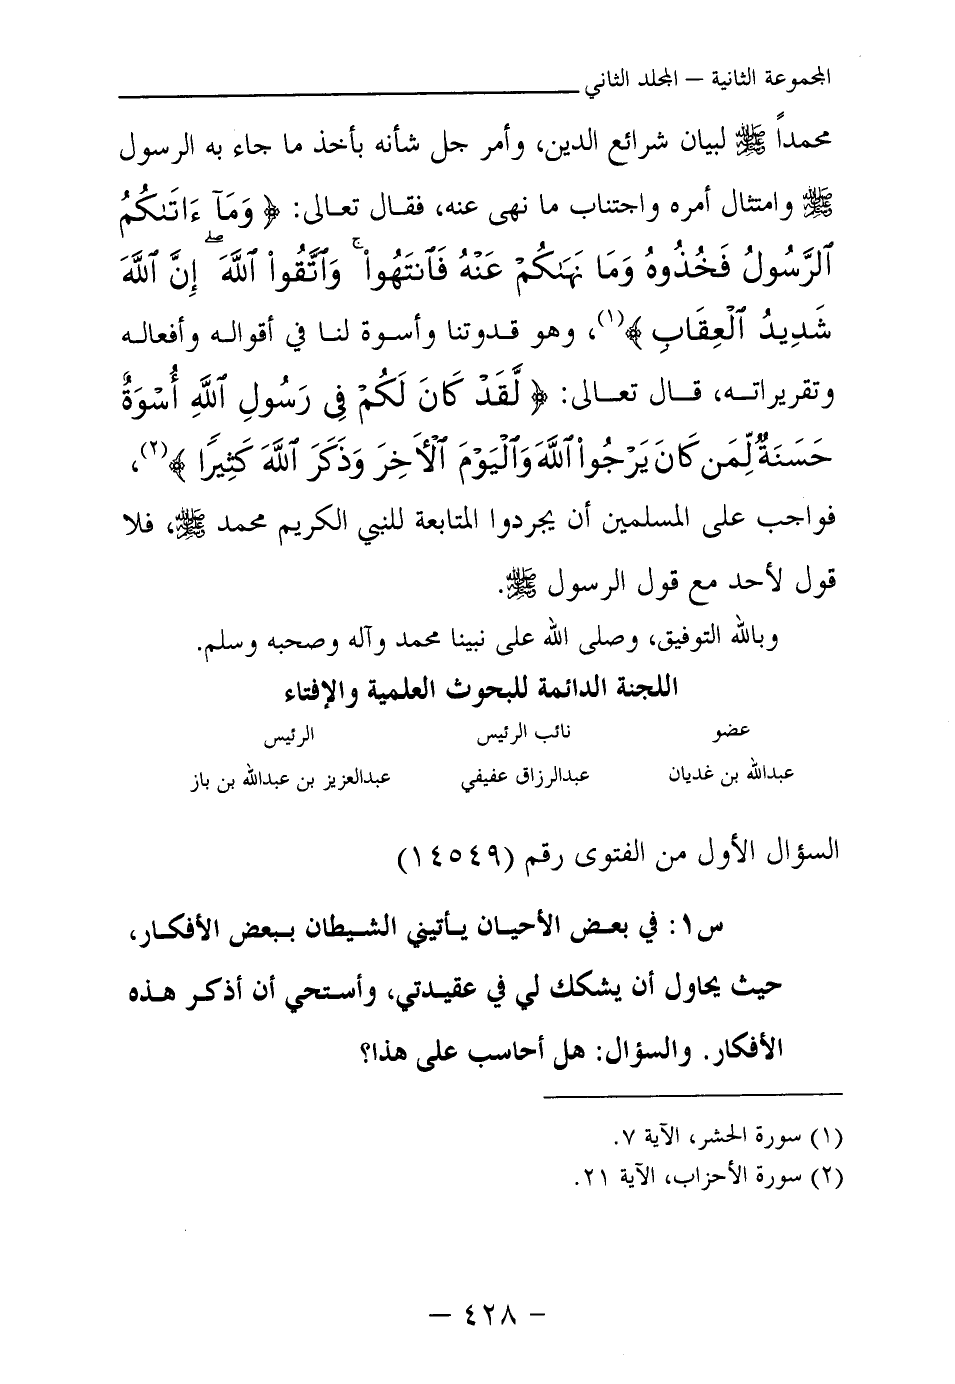 المجموعة الثانية – المجلد الثاني
محمداً ﷺ لبيان شرائع الدين، وأمر جل شأنه بأخذ ما جاء به الرسول
ﷺ وامتثال أمره واجتناب ما نهى عنه، فقال تعالى: ﴿ وَمَآ ءَاتَىٰكُمُ
ٱلرَّسُولُ فَخُذُوهُ وَمَا نَهَىٰكُمْ عَنْهُ فَٱنتَهُوا۟ ۚ وَٱتَّقُوا۟ ٱللَّهَ ۖ إِنَّ ٱللَّهَ
شَدِيدُ ٱلْعِقَابِ ﴾(١)، وهو قدوتنا وأسوة لنا في أقواله وأفعاله
وتقريراته، قال تعالى: ﴿ لَّقَدْ كَانَ لَكُمْ فِى رَسُولِ ٱللَّهِ أُسْوَةٌ
حَسَنَةٌ لِّمَن كَانَ يَرْجُوا۟ ٱللَّهَ وَٱلْيَوْمَ ٱلْأَخِرَ وَذَكَرَ ٱللَّهَ كَثِيرًا ﴾(٢)،
فواجب على المسلمين أن يجردوا المتابعة للنبي الكريم محمد ﷺ، فلا
قول لأحد مع قول الرسول ﷺ.
وبالله التوفيق، وصلى الله على نبينا محمد وآله وصحبه وسلم.
اللجنة الدائمة للبحوث العلمية والإفتاء
عضو نائب الرئيس الرئيس
عبدالله بن غديان عبدالرزاق عفيفي عبدالعزيز بن عبدالله بن باز
السؤال الأول من الفتوى رقم (١٤٥٤٩)
س١: في بعض الأحيان يأتيني الشيطان ببعض الأفكار،
حيث يحاول أن يشكك لي في عقيدتي، وأستحي أن أذكر هذه
الأفكار. والسؤال: هل أحاسب على هذا؟
(١) سورة الحشر، الآية ٧.
(٢) سورة الأحزاب، الآية ٢١.
– ٤٢٨ –